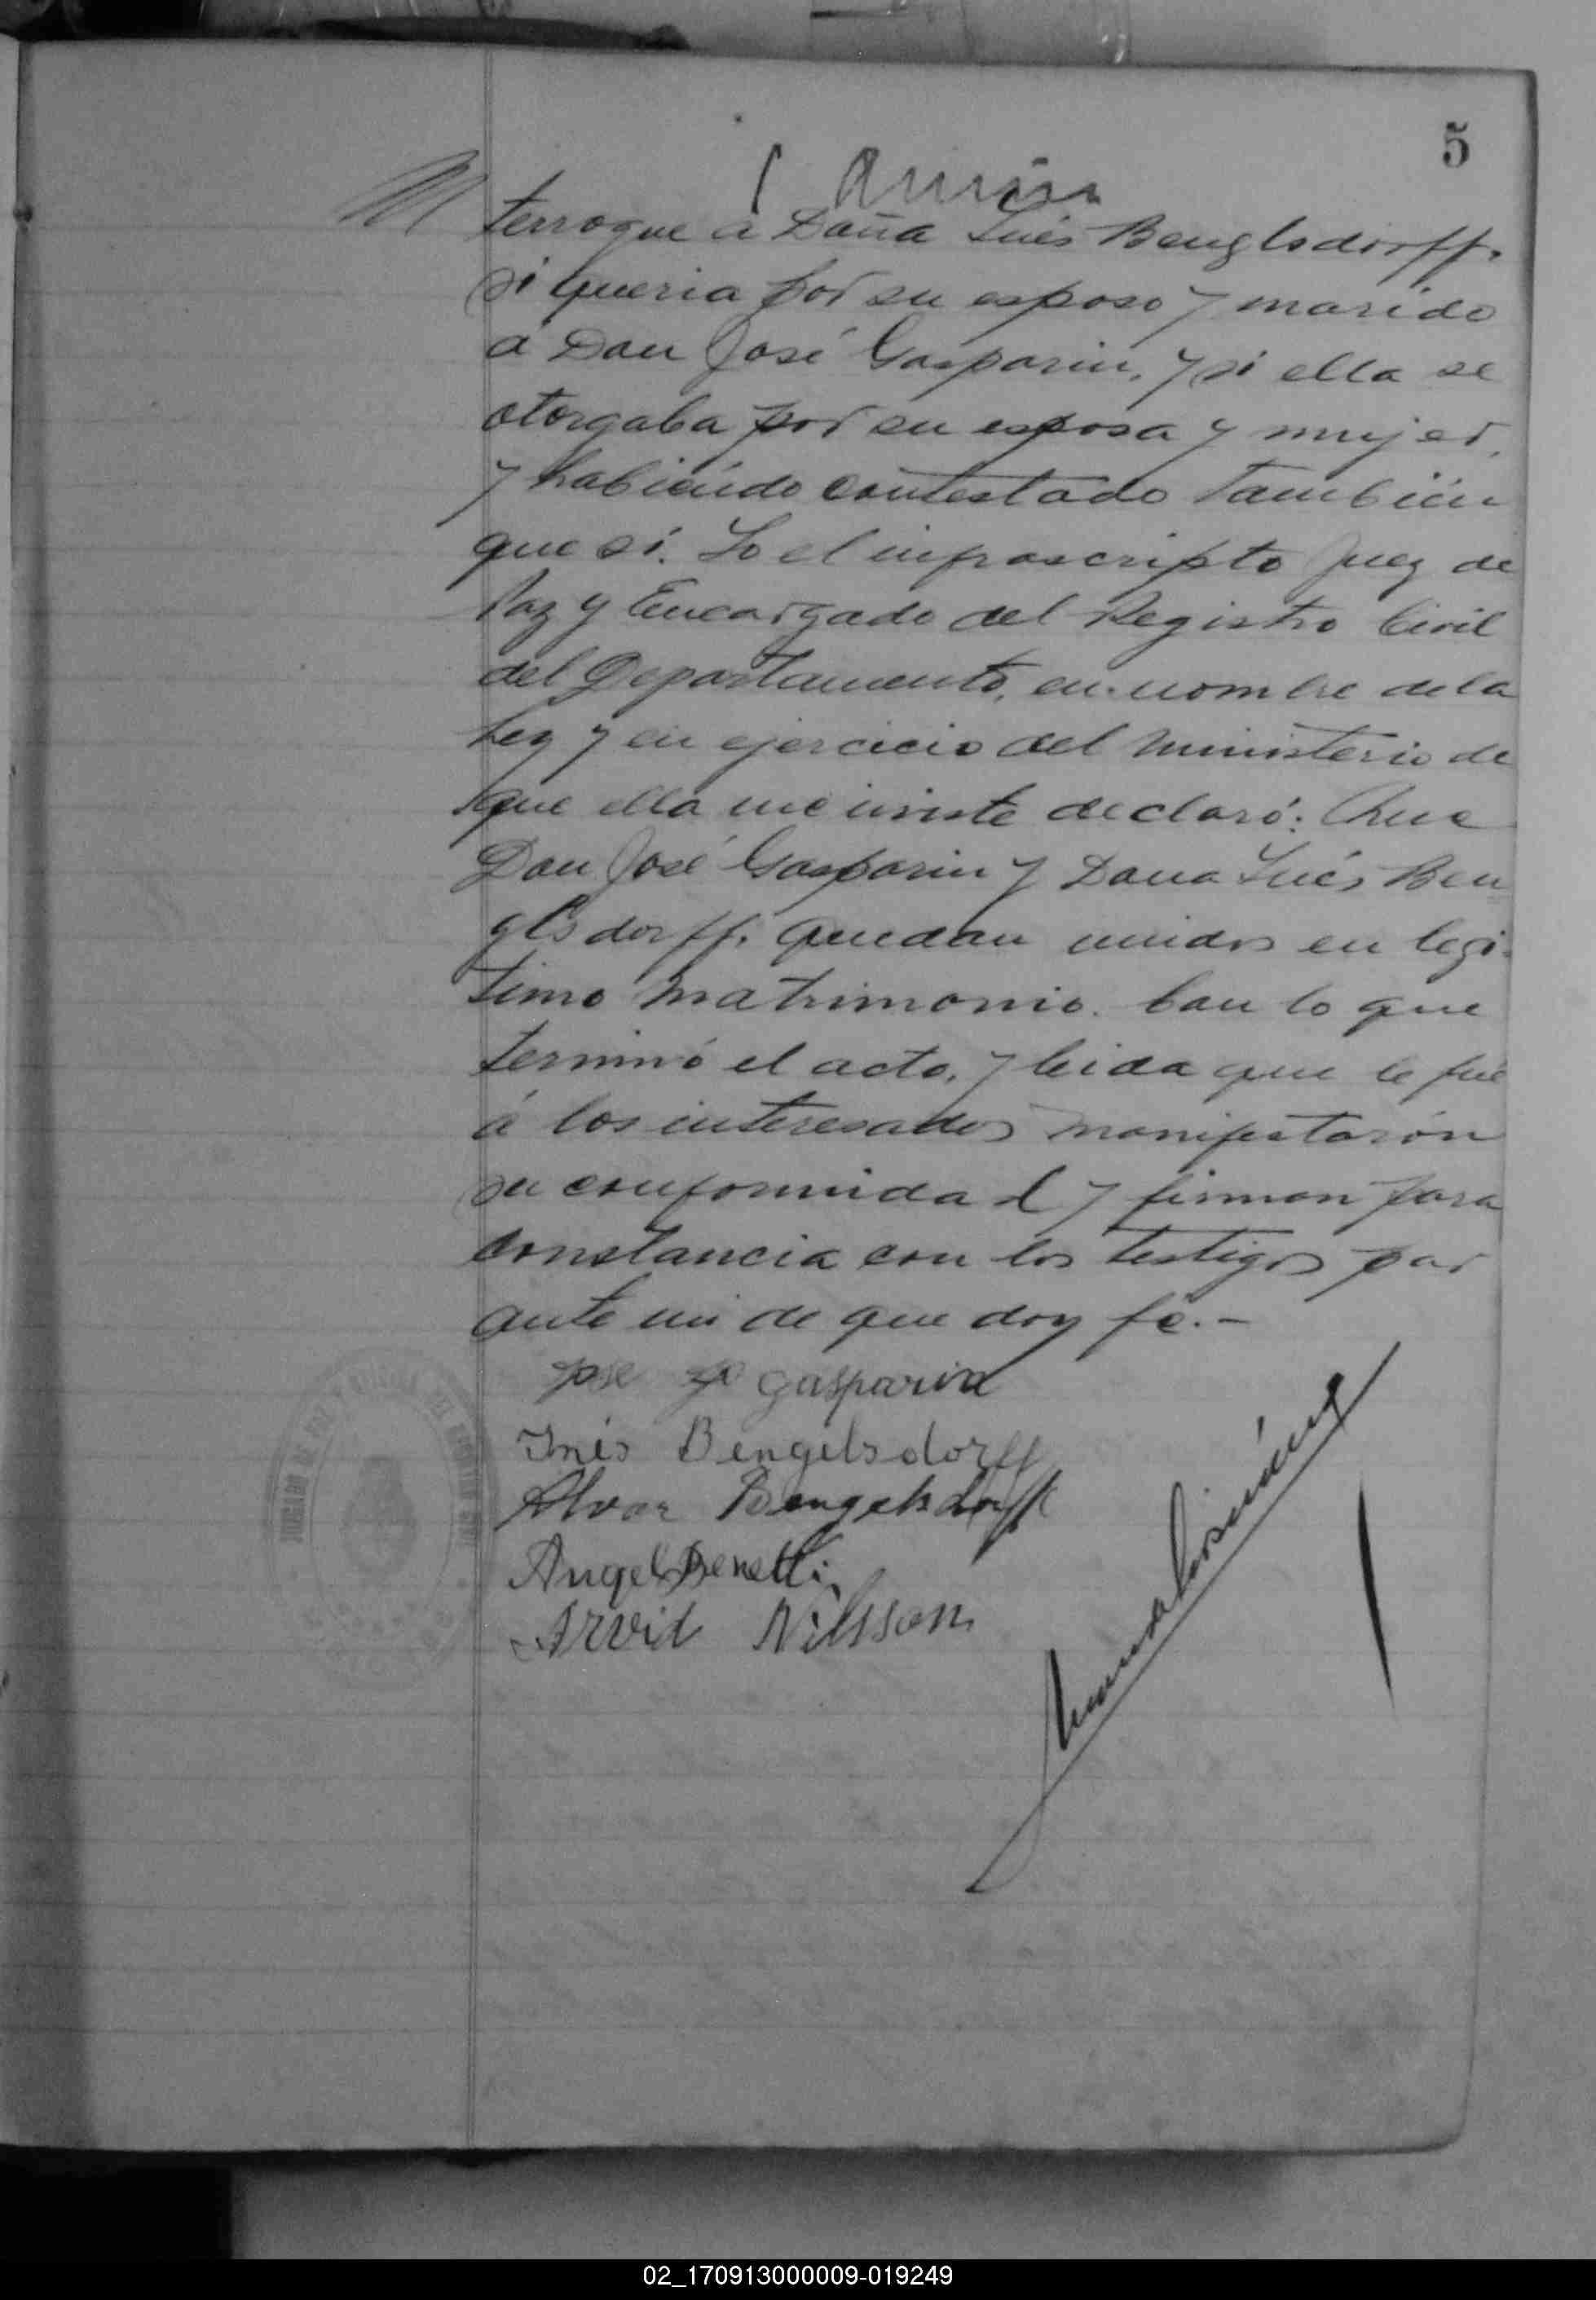 5
terrogue a Doña Inés Benglsdorff.
si queria por su esposo y marido
á Don José Gasparin, y si ella se
otorgaba por su esposa y mujer,
y habiendo contestado tambien
que sí. Yo el infrascripto Juez de
Paz y Encargado del Registro Civil
del Departamento, en nombre de la
Ley y en ejercicio del ministerio de
que ella me inviste declaró: Que
Don José Gasparin y Dona Inés Ben
glsdorff. quedan unidos en legi-
timo matrimonio. Con lo que
terminó el acto, y leida que le fué
á los interesados manifestarón
su conformidad y firman para
constancia con los testigos por
ante mi de que doy fé.-
Jose Gasparin
Inés Bengelsdorff
Alvar Bengelsdorff
Angel Benetti
Arvid Nilsson
JUZGADO DE PAZ Y
02_170913000009-019249